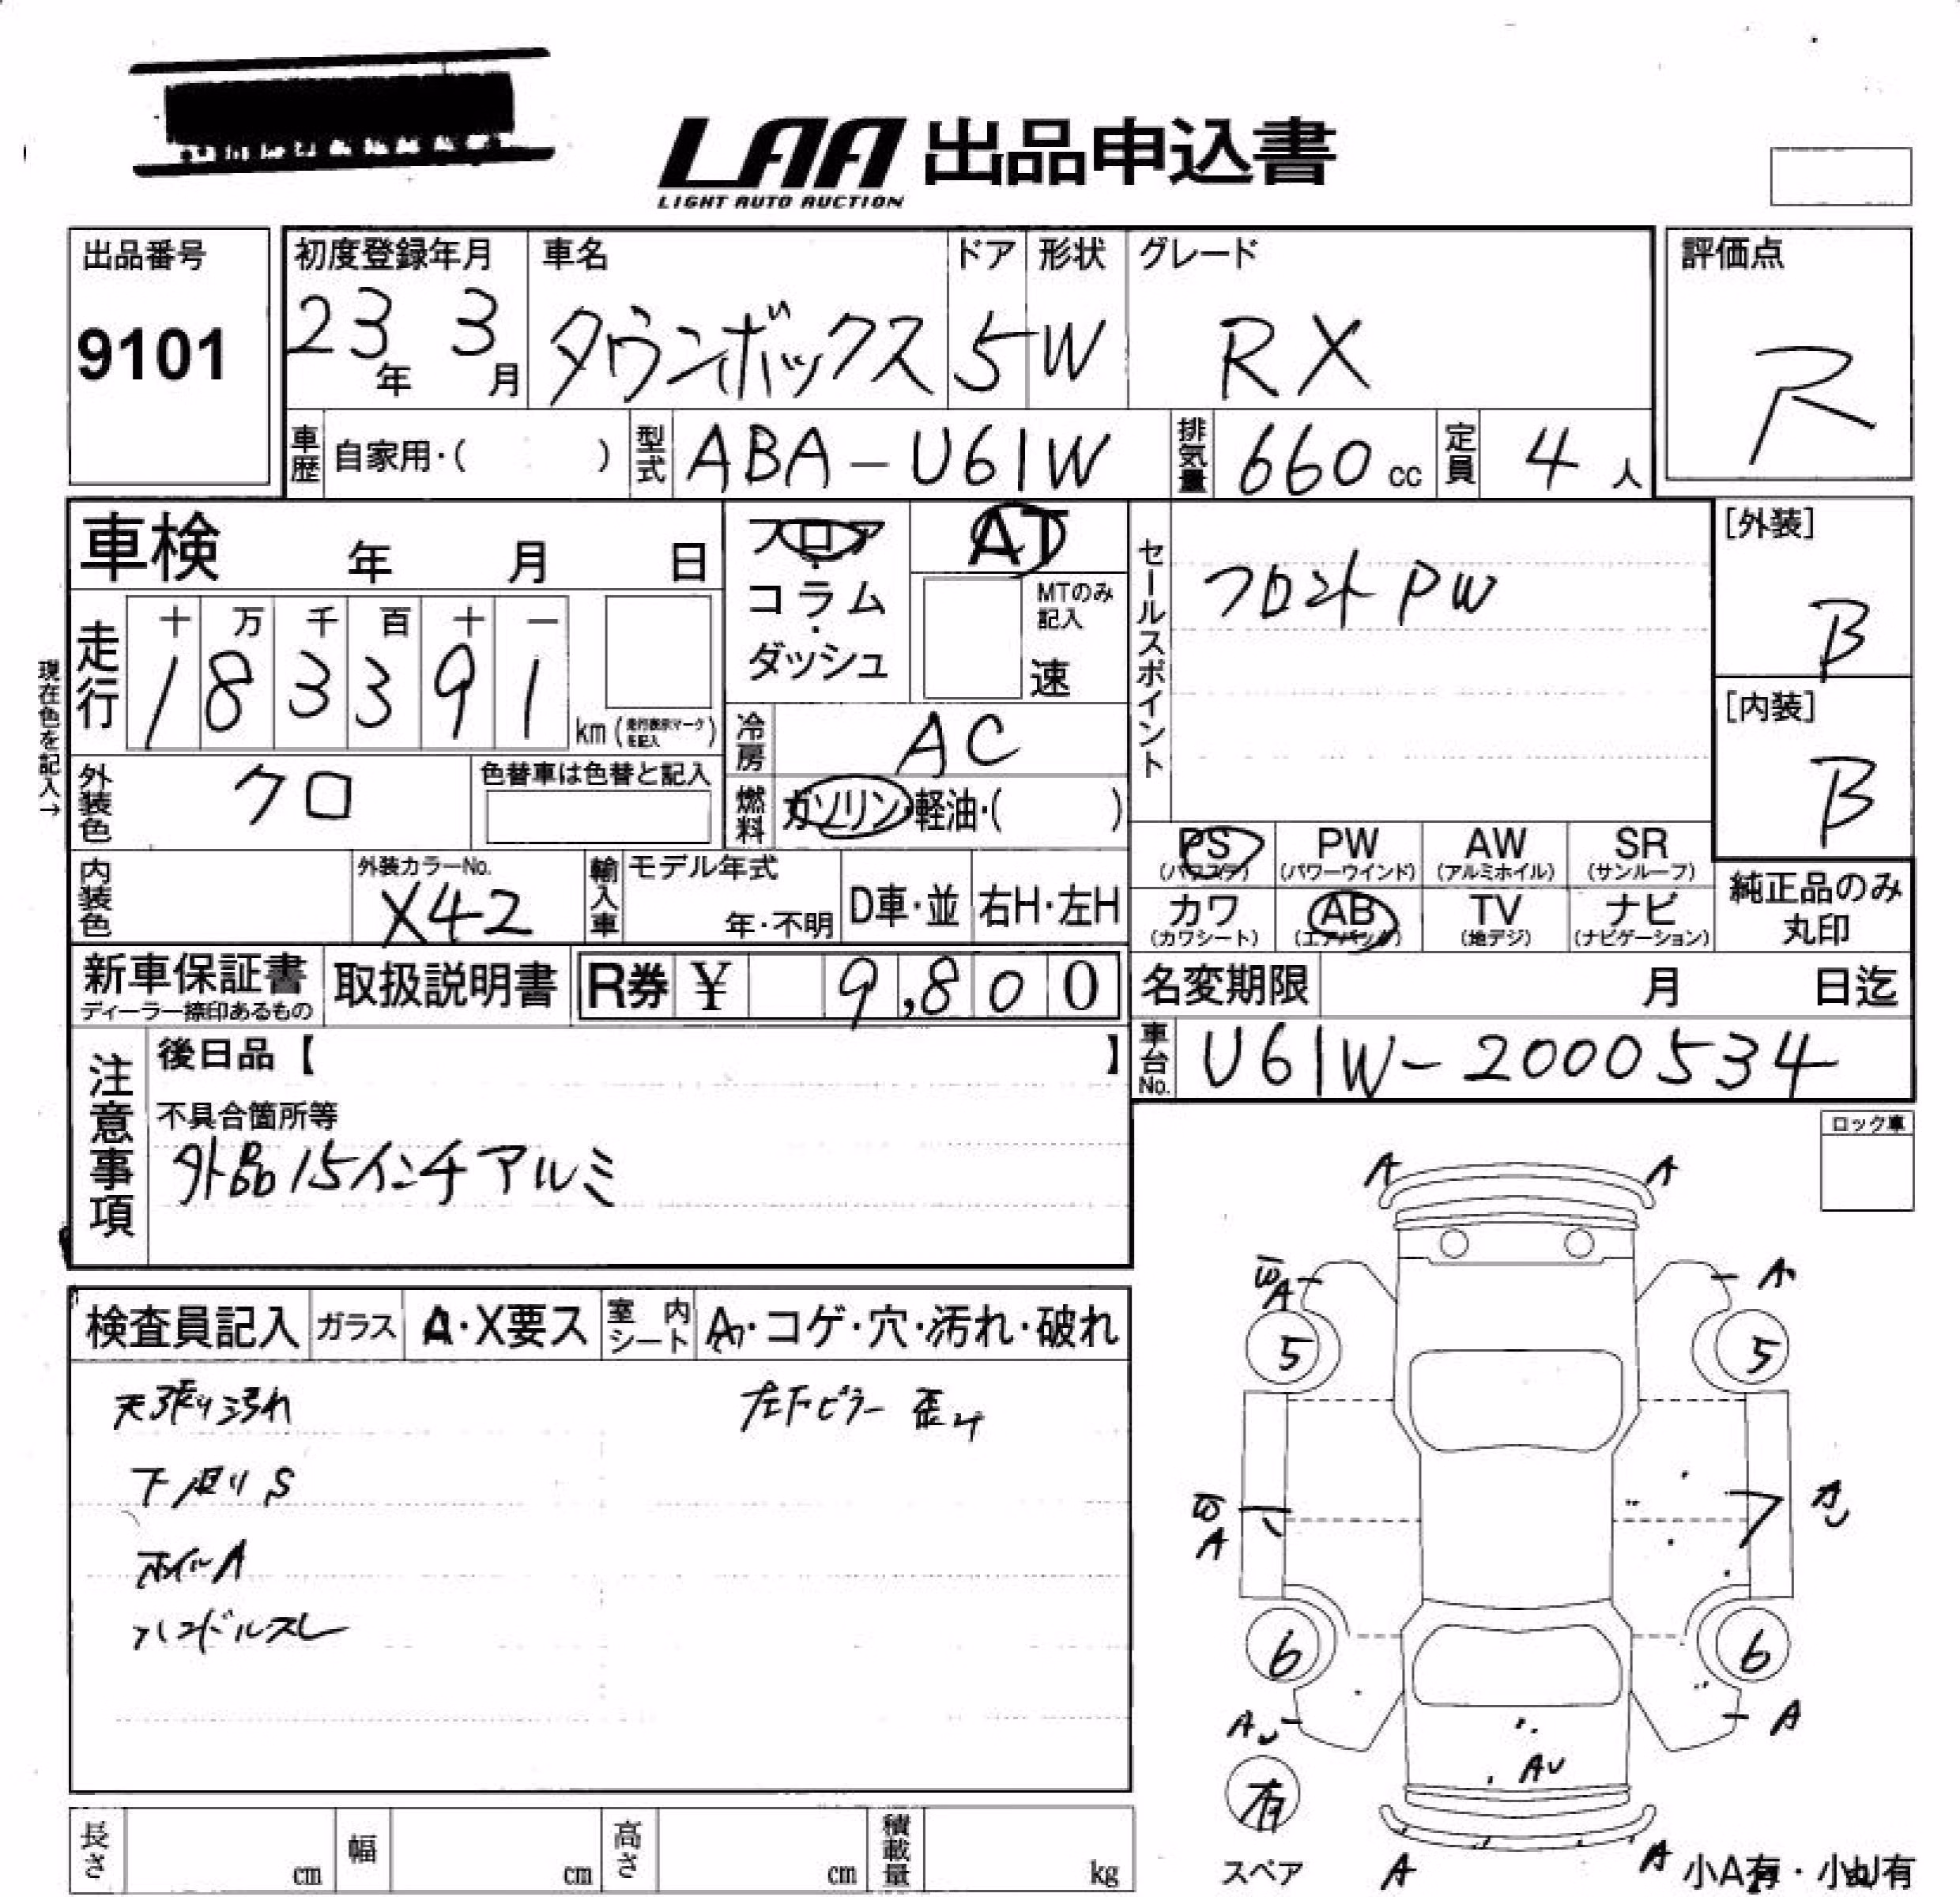 LAA 出品申込書
LIGHT AUTO AUCTION
出品番号
9101
初度登録年月
23年 3月
車名
タウンボックス
ドア
5
形状
W
グレード
RX
評価点
R
車歴 自家用・( )
型式 ABA-U61W
排気量 660 cc
定員 4 人
車検 年 月 日
フロア・コラム・ダッシュ
AT
MTのみ記入
速
セールスポイント
フロントPW
[外装]
B
[内装]
B
現在色を記入→
走行
十 万 千 百 十 一
1 8 3 3 9 1
km (走行表示マークを記入)
冷房 AC
外装色 クロ
色替車は色替と記入
燃料 ガソリン・軽油・( )
PS (パワステ)
PW (パワーウインド)
AW (アルミホイル)
SR (サンルーフ)
カワ (カワシート)
AB (エアバッグ)
TV (地デジ)
ナビ (ナビゲーション)
純正品のみ丸印
内装色
外装カラーNo.
X42
輸入車
モデル年式
年・不明
D車・並
右H・左H
新車保証書
ディーラー捺印あるもの
取扱説明書
R券 ¥ 9,800
名変期限 月 日迄
車台No. U61W-2000534
注意事項
後日品【 】
不具合箇所等
外品15インチアルミ
ロック車
検査員記入
ガラス A・X要ス
室内シート A・コゲ・穴・汚れ・破れ
天張り汚れ
左下ピラー 歪み
下廻りS
ホイルA
ハンドルスレ
A A
A A
5 5
A
A
6 6
A A
AU
有
スペア
A A
小A有・小U有
長さ cm
幅 cm
高さ cm
積載量 kg